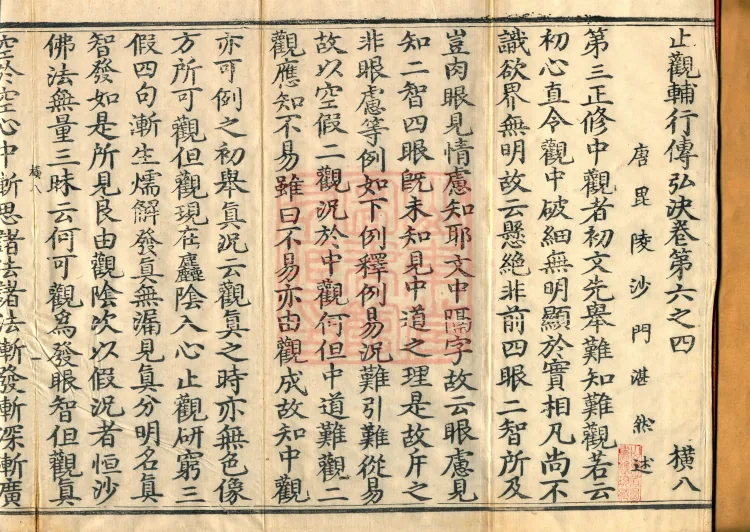 止觀輔行傳弘決卷第六之四 橫八
唐毘陵沙門湛然述
第三正修中觀者初文先舉難知難觀若云
初心直令觀中破細無明顯於實相凡尚不
識欲界無明故云懸絕非前四眼二智所及
豈肉眼見情慮知耶文中隔字故云眼慮見
知二智四眼旣未知見中道之理是故斥之
非眼慮等例如下例釋例易況難引難從易
故以空假二觀況於中觀何但中道難觀二
觀應知不易雖曰不易亦由觀成故知中觀
亦可例之初舉眞況云觀眞之時亦無色像
方所可觀但觀現在麤陰入心止觀研窮三
假四句漸生煗解發眞無漏見眞分明名眞
智發如是所見良由觀陰次以假況者恒沙
佛法無量三昧云何可觀爲發眼智但觀眞
橫八
空於空心中漸思諸法諸法漸發漸深漸廣